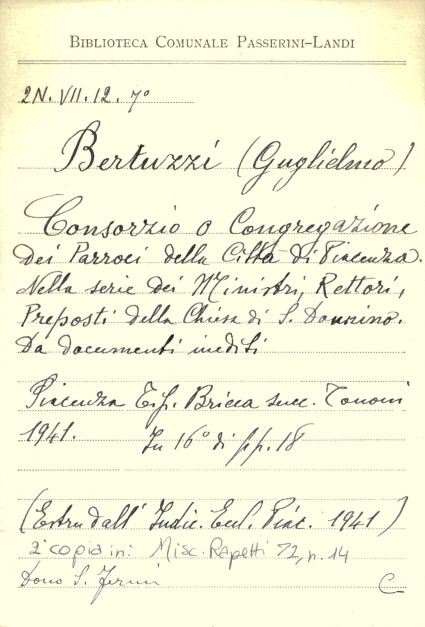 BIBLIOTECA COMUNALE PASSERINI-LANDI
2N. VII. 12. 7º
Bertuzzi (Guglielmo)
Consorzio o Congregazione
dei Parroci della Città di Piacenza.
Nella serie dei Ministri, Rettori,
Preposti della Chiesa di S. Donnino.
Da documenti inediti
Piacenza Tip. Bricca succ. Tononi
1941. In 16º di pp. 18
(Estr. dall' Indic. Eccl. Piac. 1941)
2ª copia in: Misc. Rapetti 72, n. 14
Dono S. Fermi
C